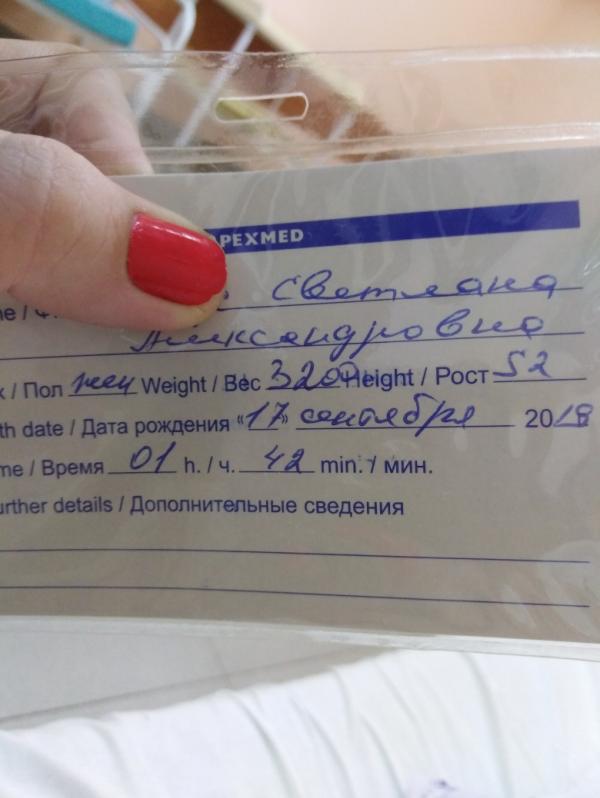 PEXMED
Светлана
Александровна
/ Пол жен Weight / Вес 3200 Height / Рост 52
th date / Дата рождения «17» сентября 2018
me / Время 01 h. / ч. 42 min. / мин.
urther details / Дополнительные сведения